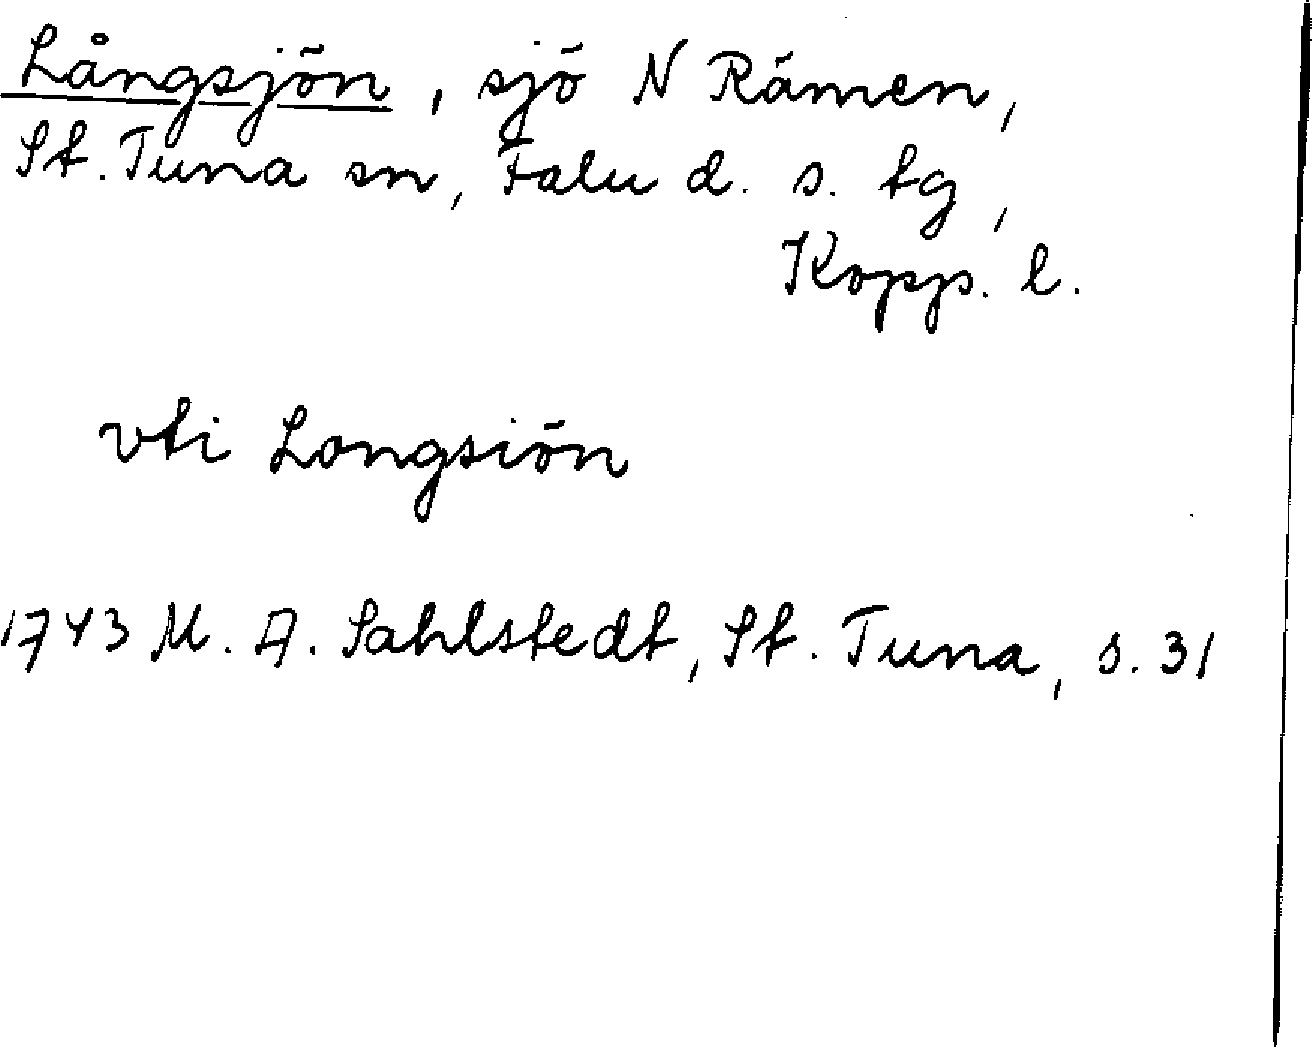 Långsjön, sjö N Rämen,
St. Tuna sn, Falu d. s. tg,
Kopp. l.
vti Longsiön
1743 M. A. Sahlstedt, St. Tuna, s. 31